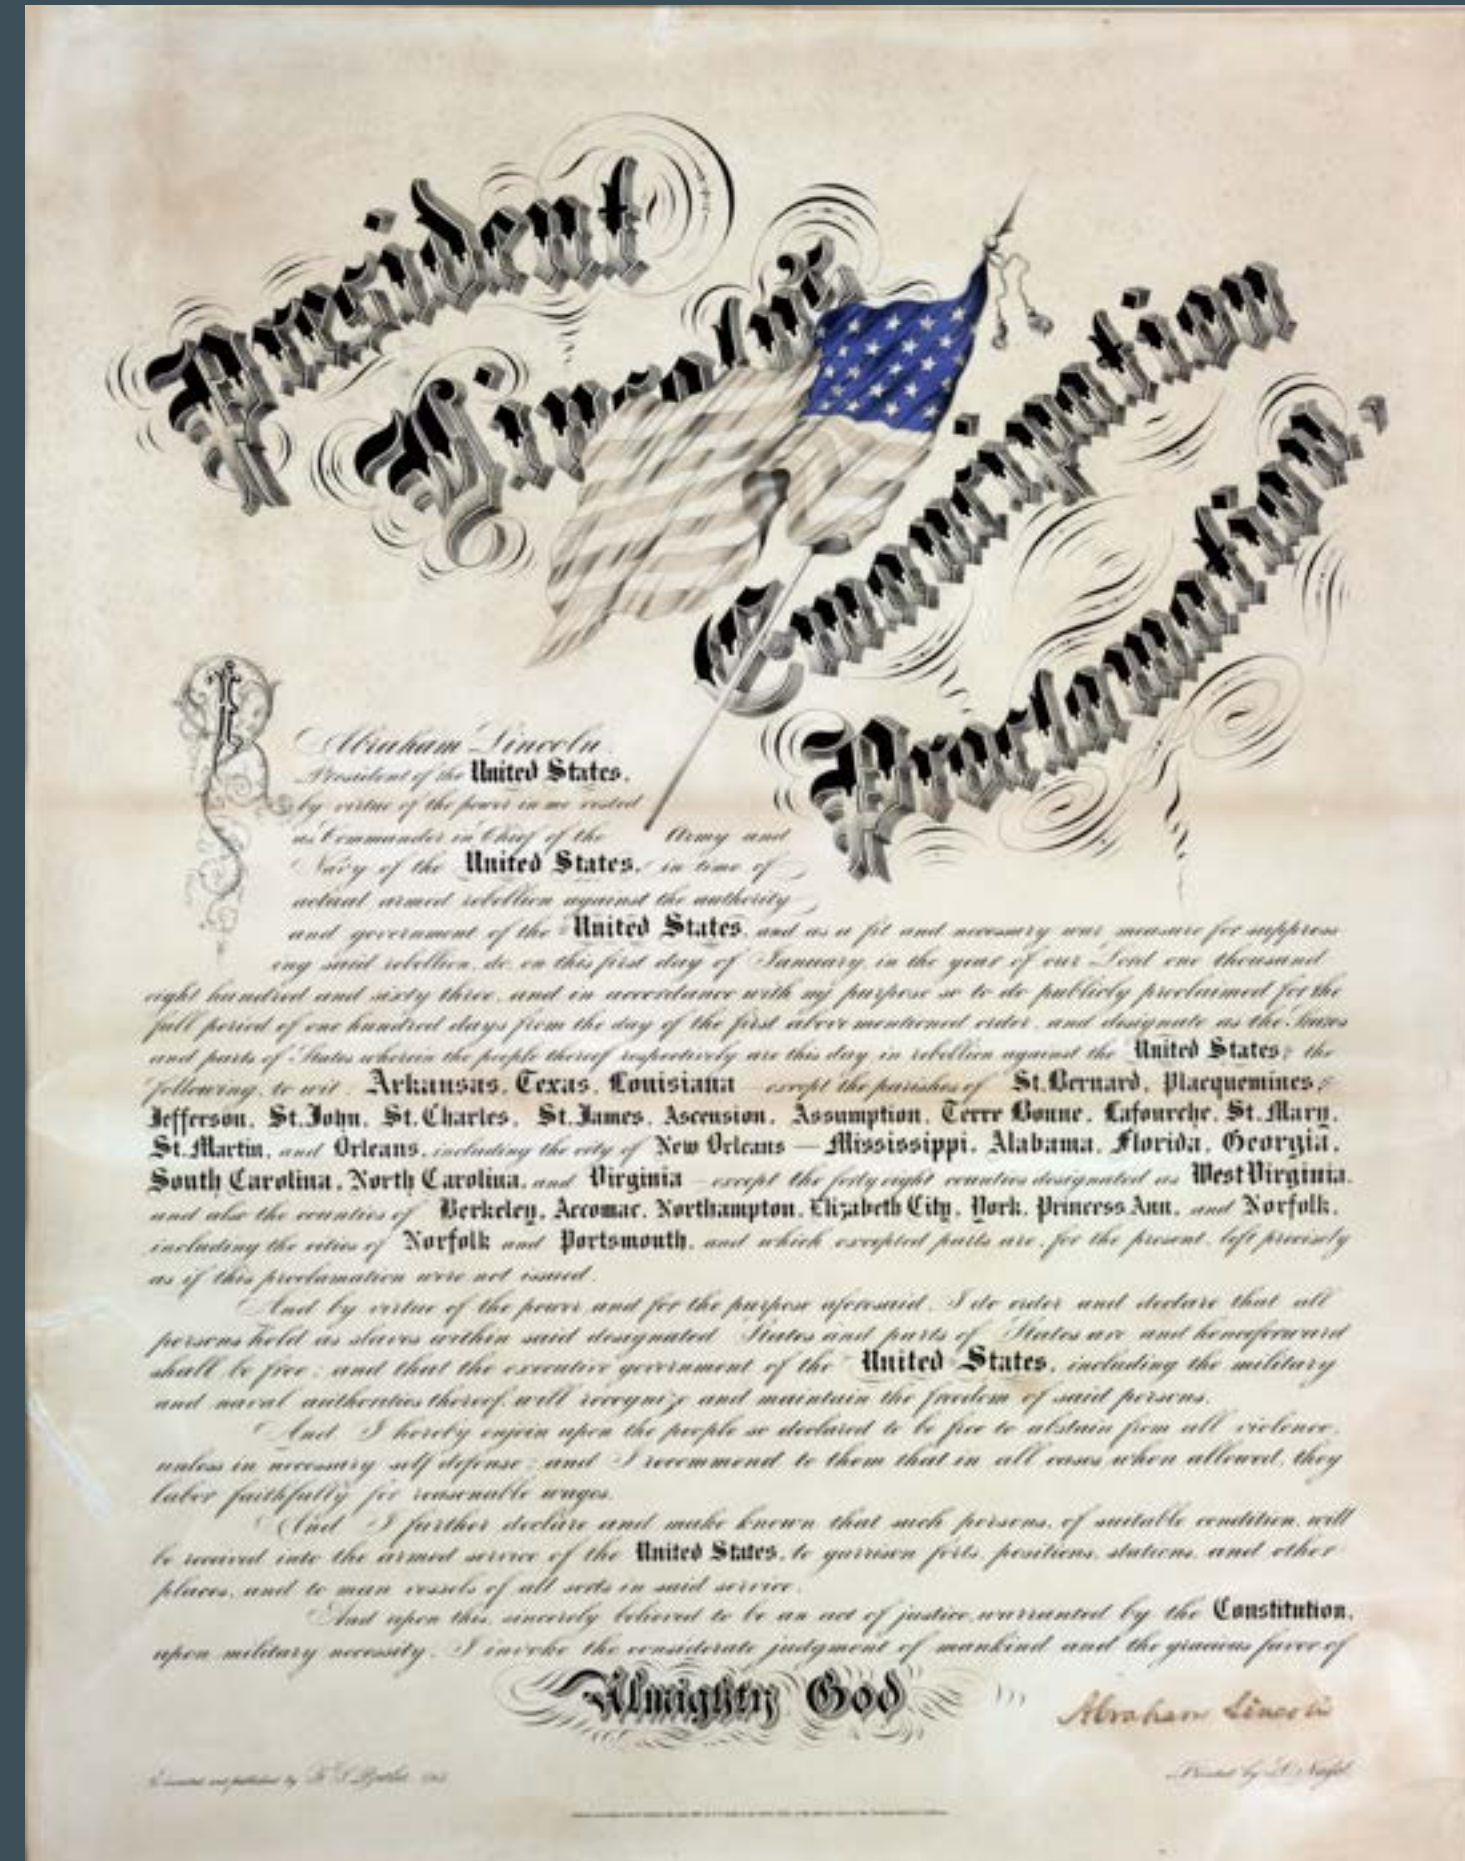 President
Lincoln's
Emancipation
Proclamation.
I
Abraham Lincoln
President of the United States,
by virtue of the power in me vested
as Commander in Chief of the Army and
Navy of the United States, in time of
actual armed rebellion against the authority
and government of the United States, and as a fit and necessary war measure for suppress
ing said rebellion, do, on this first day of January, in the year of our Lord one thousand
eight hundred and sixty three, and in accordance with my purpose so to do publicly proclaimed for the
full period of one hundred days from the day of the first above mentioned order, and designate as the States
and parts of States wherein the people thereof respectively are this day in rebellion against the United States, the
following, to wit: Arkansas, Texas, Louisiana except the parishes of St. Bernard, Placquemines,
Jefferson, St. John, St. Charles, St. James, Ascension, Assumption, Terre Bonne, Lafourche, St. Mary,
St. Martin, and Orleans, including the city of New Orleans — Mississippi, Alabama, Florida, Georgia,
South Carolina, North Carolina, and Virginia — except the forty eight counties designated as West Virginia,
and also the counties of Berkeley, Accomac, Northampton, Elizabeth City, York, Princess Ann, and Norfolk,
including the cities of Norfolk and Portsmouth, and which excepted parts are, for the present, left precisely
as if this proclamation were not issued.
And by virtue of the power and for the purpose aforesaid, I do order and declare that all
persons held as slaves within said designated States and parts of States are and henceforward
shall be free; and that the executive government of the United States, including the military
and naval authorities thereof, will recognize and maintain the freedom of said persons.
And I hereby enjoin upon the people so declared to be free to abstain from all violence,
unless in necessary self defense; and I recommend to them that in all cases when allowed, they
labor faithfully for reasonable wages.
And I further declare and make known that such persons, of suitable condition, will
be received into the armed service of the United States, to garrison forts, positions, stations, and other
places, and to man vessels of all sorts in said service.
And upon this, sincerely believed to be an act of justice, warranted by the Constitution,
upon military necessity, I invoke the considerate judgment of mankind and the gracious favor of
Almighty God
Abraham Lincoln
and published by
Printed by